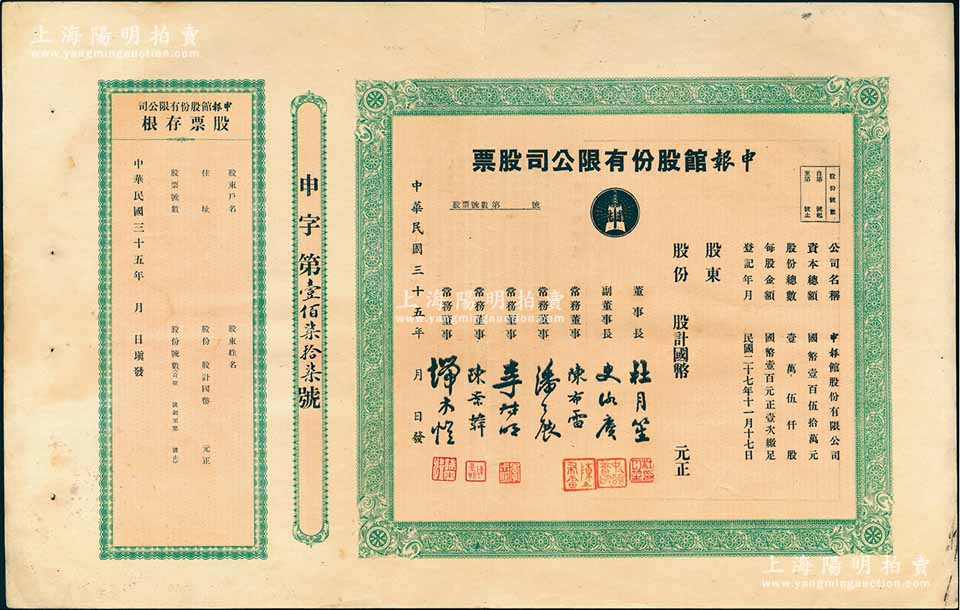 上海陽明拍賣
www.yangmingauction.com
申報館股份有限公司股票
股份號數
自第 號起
至第 號止
股票號數第 號
公司名稱 申報館股份有限公司
資本總額 國幣壹百伍拾萬元
股份總數 壹萬伍仟股
每股金額 國幣壹百元正壹次繳足
登記年月 民國二十七年十一月十七日
股東
股份 股計國幣 元正
董事長 杜月笙
副董事長 史詠賡
常務董事 陳布雷
常務董事 潘公展
常務董事 李叔明
常務董事 陳景韓
常務董事
中華民國三十五年 月 日發
申字第壹佰柒拾柒號
申報館股份有限公司
股票存根
股東戶名 股東姓名
住址 股份 股計國幣 元正
股票號數 股份號數自第 號起至第 號止
中華民國三十五年 月 日填發
上海陽明拍賣
www.yangmingauction.com
上海陽明拍賣
www.yangmingauction.com